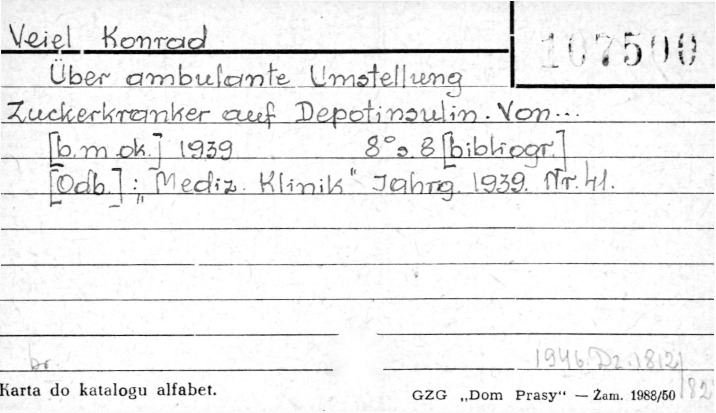 Veiel Konrad
107500
Über ambulante Umstellung
Zuckerkranker auf Depotinsulin. Von...
[b.m.ok.] 1939 8° s. 8 [bibliogr.]
[Odb.]: „Mediz. Klinik" Jahrg. 1939. Nr. 41.
br.
1946. Dz. 1812/82
Karta do katalogu alfabet.
GZG „Dom Prasy“ — Zam. 1988/50